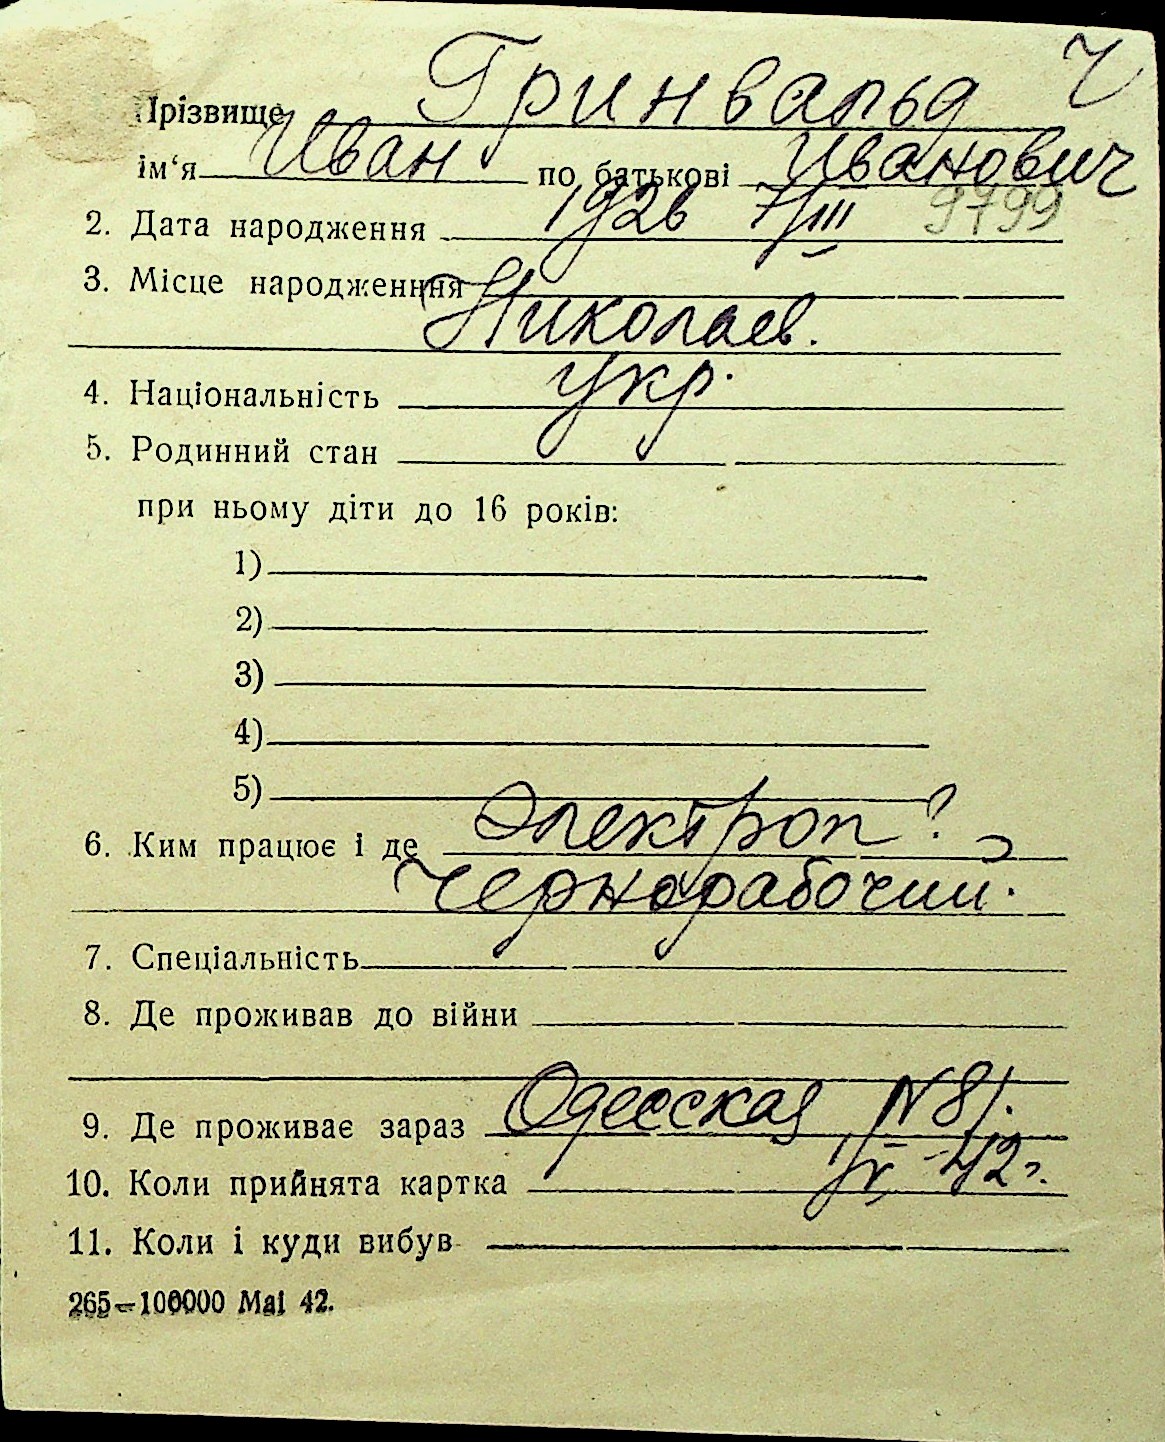 Ч
Прізвище Гринвальд
ім‘я Иван по батькові Иванович
2. Дата народження 1926 7/III 9799
3. Місце народженння
Николаев.
4. Національність укр.
5. Родинний стан
при ньому діти до 16 років:
1)
2)
3)
4)
5)
6. Ким працює і де Электроп ?
Чернорабочий.
7. Спеціальність
8. Де проживав до війни
9. Де проживає зараз Одесская N 81.
10. Коли прийнята картка -42г.
11. Коли і куди вибув
265—100000 Mai 42.